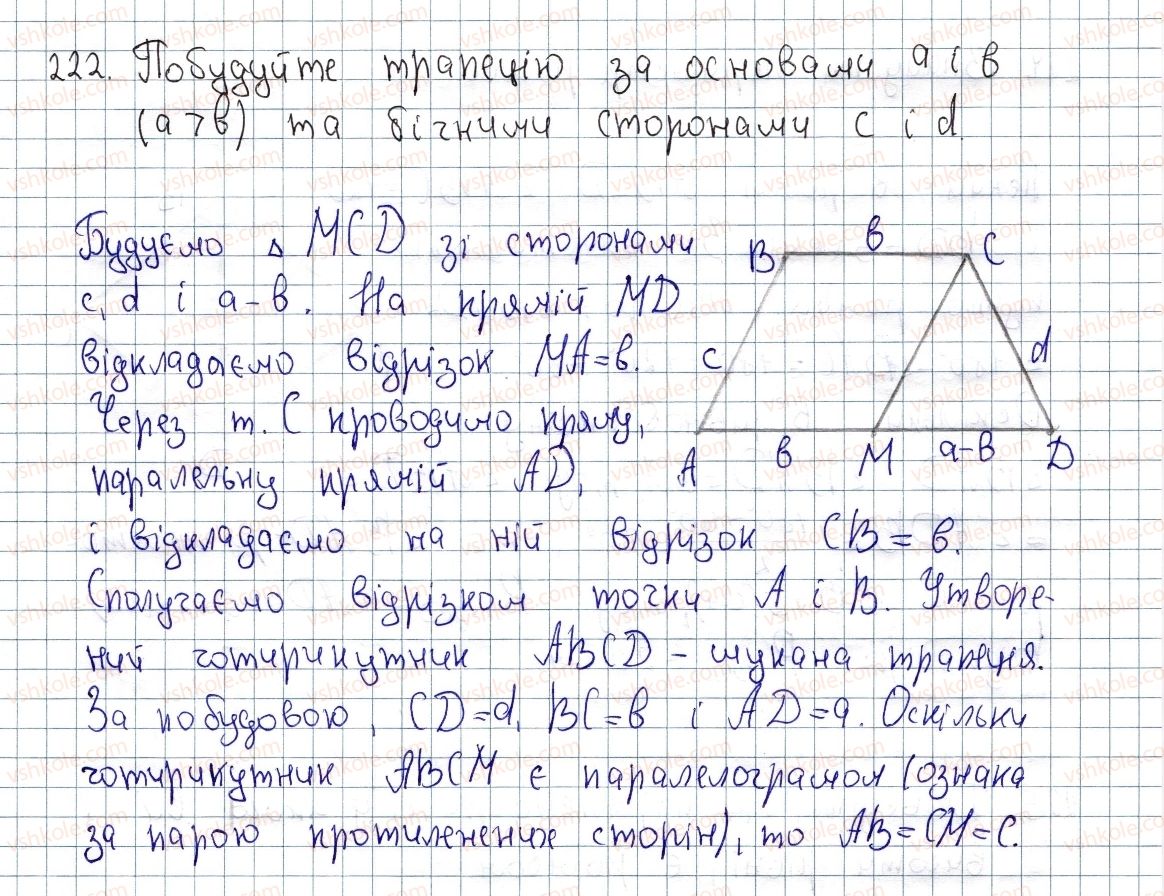 222. Побудуйте трапецію за основами а і в
(а > в) та бічними сторонами с і d.
Будуємо △ MCD зі сторонами
c, d і a-в. На прямій MD
відкладаємо відрізок MA=в.
Через т. С проводимо пряму,
паралельну прямій AD,
і відкладаємо на ній відрізок CB = в.
Сполучаємо відрізком точки А і В. Утворе-
ний чотирикутник ABCD - шукана трапеція.
За побудовою, CD=d, BC=в і AD=a. Оскільки
чотирикутник ABCM є паралелограмом (ознака
за парою протилежних сторін), то AB=CM=C.
B в C
c d
A в M a-в D
vshkole.com